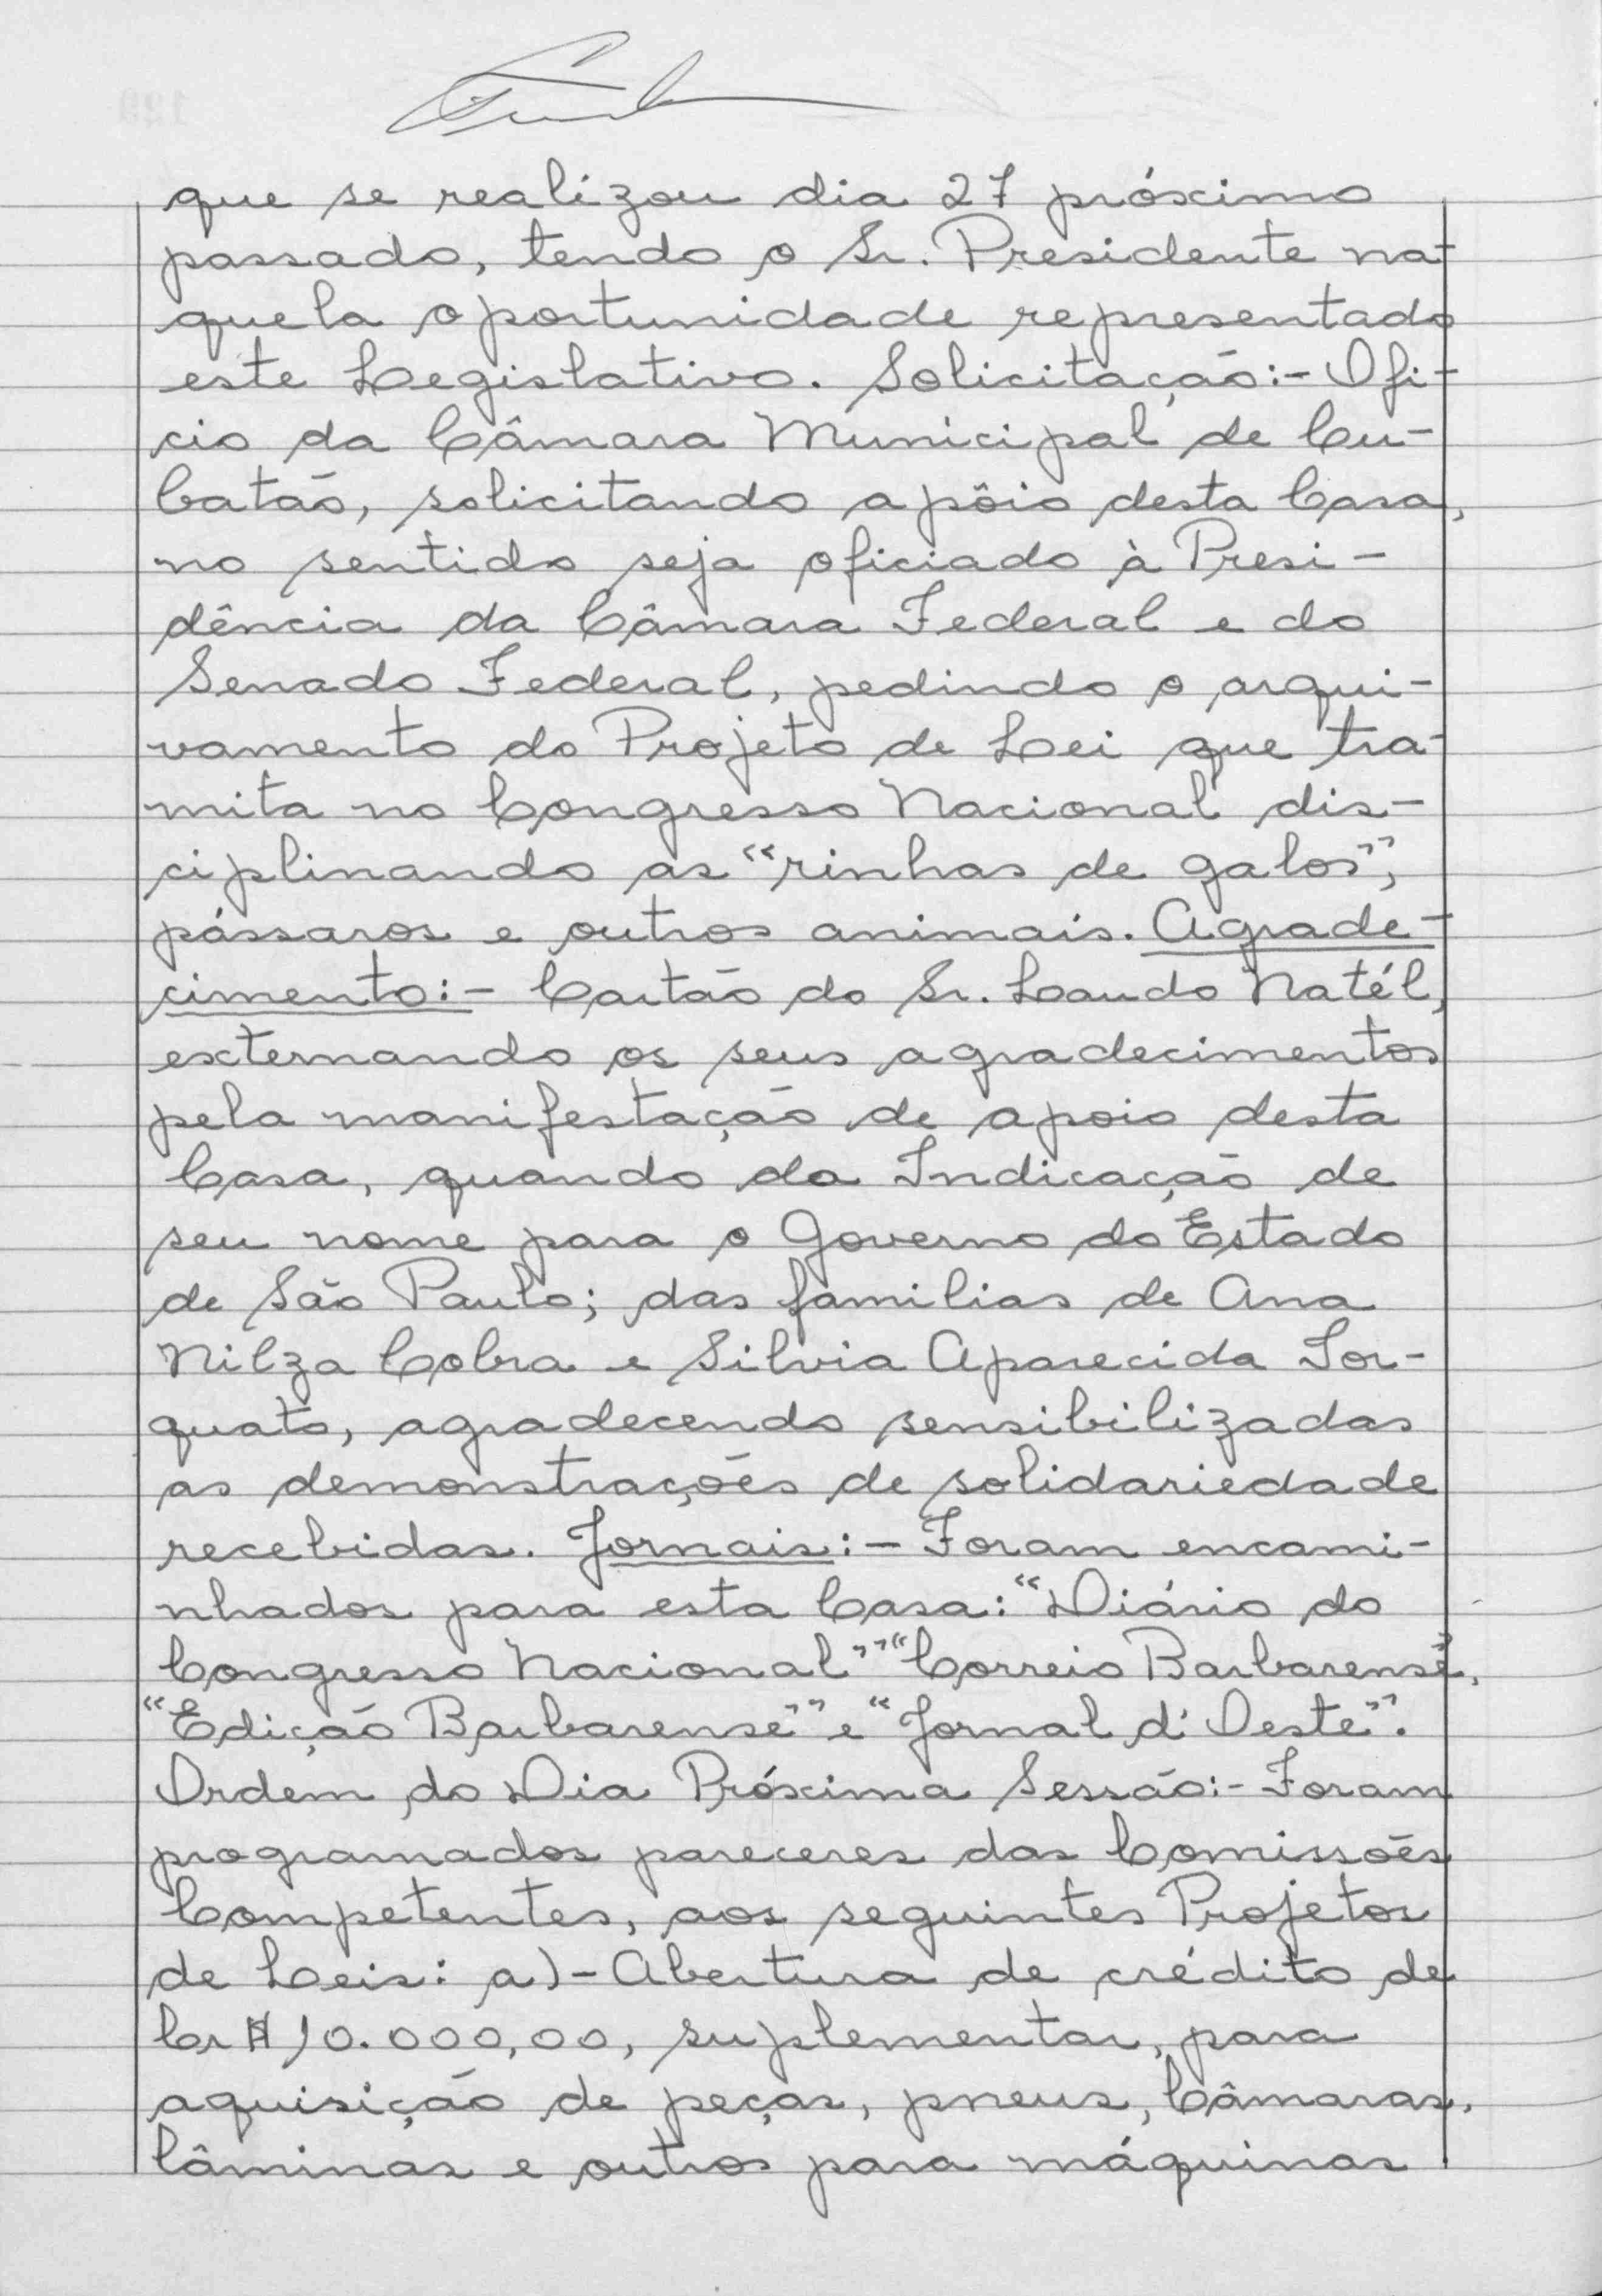 que se realizou dia 27 próximo
passado, tendo o Sr. Presidente na-
quela oportunidade representado
este Legislativo. Solicitação:- Ofi-
cio da Câmara Municipal de Cu-
batão, solicitando apôio desta Casa,
no sentido seja oficiado à Presi-
dência da Câmara Federal e do
Senado Federal, pedindo o arqui-
vamento do Projeto de Lei que tra-
mita no Congresso Nacional dis-
ciplinando as "rinhas de galos",
pássaros e outros animais. Agrade-
cimento:- Cartão do Sr. Laudo Natél,
externando os seus agradecimentos
pela manifestação de apoio desta
Casa, quando da Indicação de
seu nome para o Governo do Estado
de São Paulo; das familias de Ana
Nilza Cobra e Silvia Aparecida Tor-
quato, agradecendo sensibilizadas
as demonstrações de solidariedade
recebidas. Jornais:- Foram encami-
nhados para esta Casa: "Diário do
Congresso Nacional" "Correio Barbarense",
"Edição Barbarense" e "Jornal d'Oeste".
Ordem do Dia Próxima Sessão:- Foram
programados pareceres das Comissões
Competentes, aos seguintes Projetos
de Leis: a)- Abertura de crédito de
Cr$ 10.000,00, suplementar, para
aquisição de peças, pneus, Câmaras,
lâminas e outros para máquinas